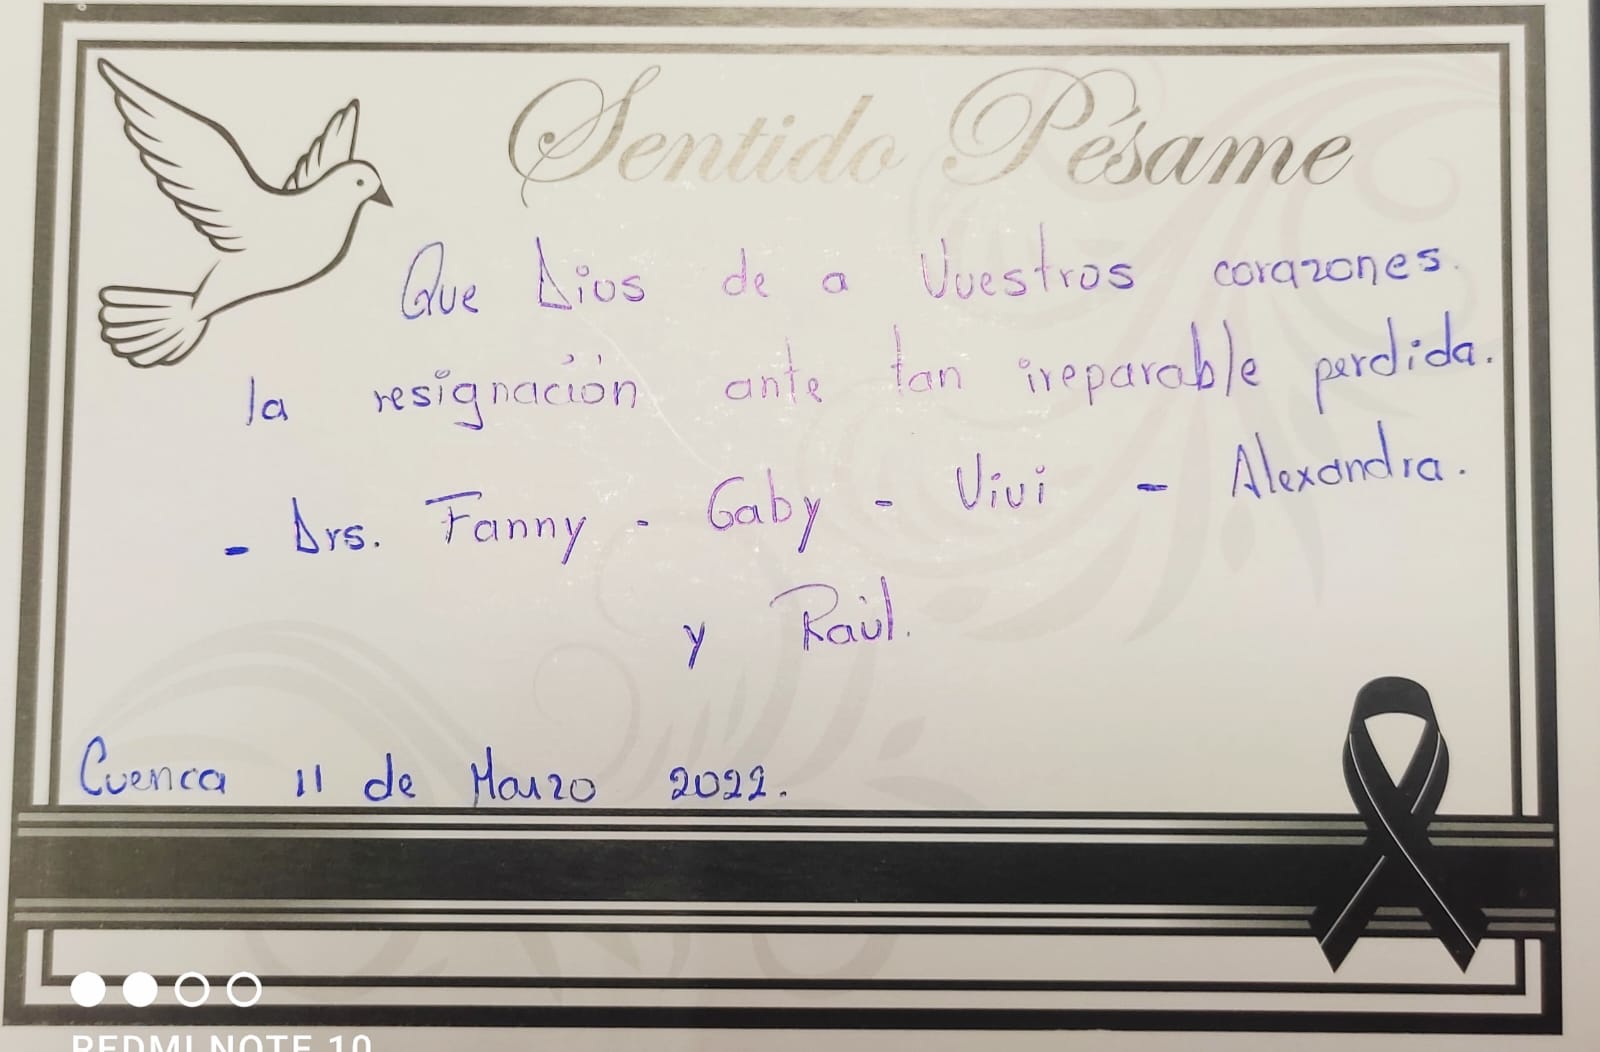 Sentido Pésame
Que Dios de a Vuestros corazones.
la resignación ante tan ireparable perdida.
- Drs. Fanny - Gaby - Vivi - Alexandra.
y Raúl.
Cuenca 11 de Marzo 2022.
REDMI NOTE 10